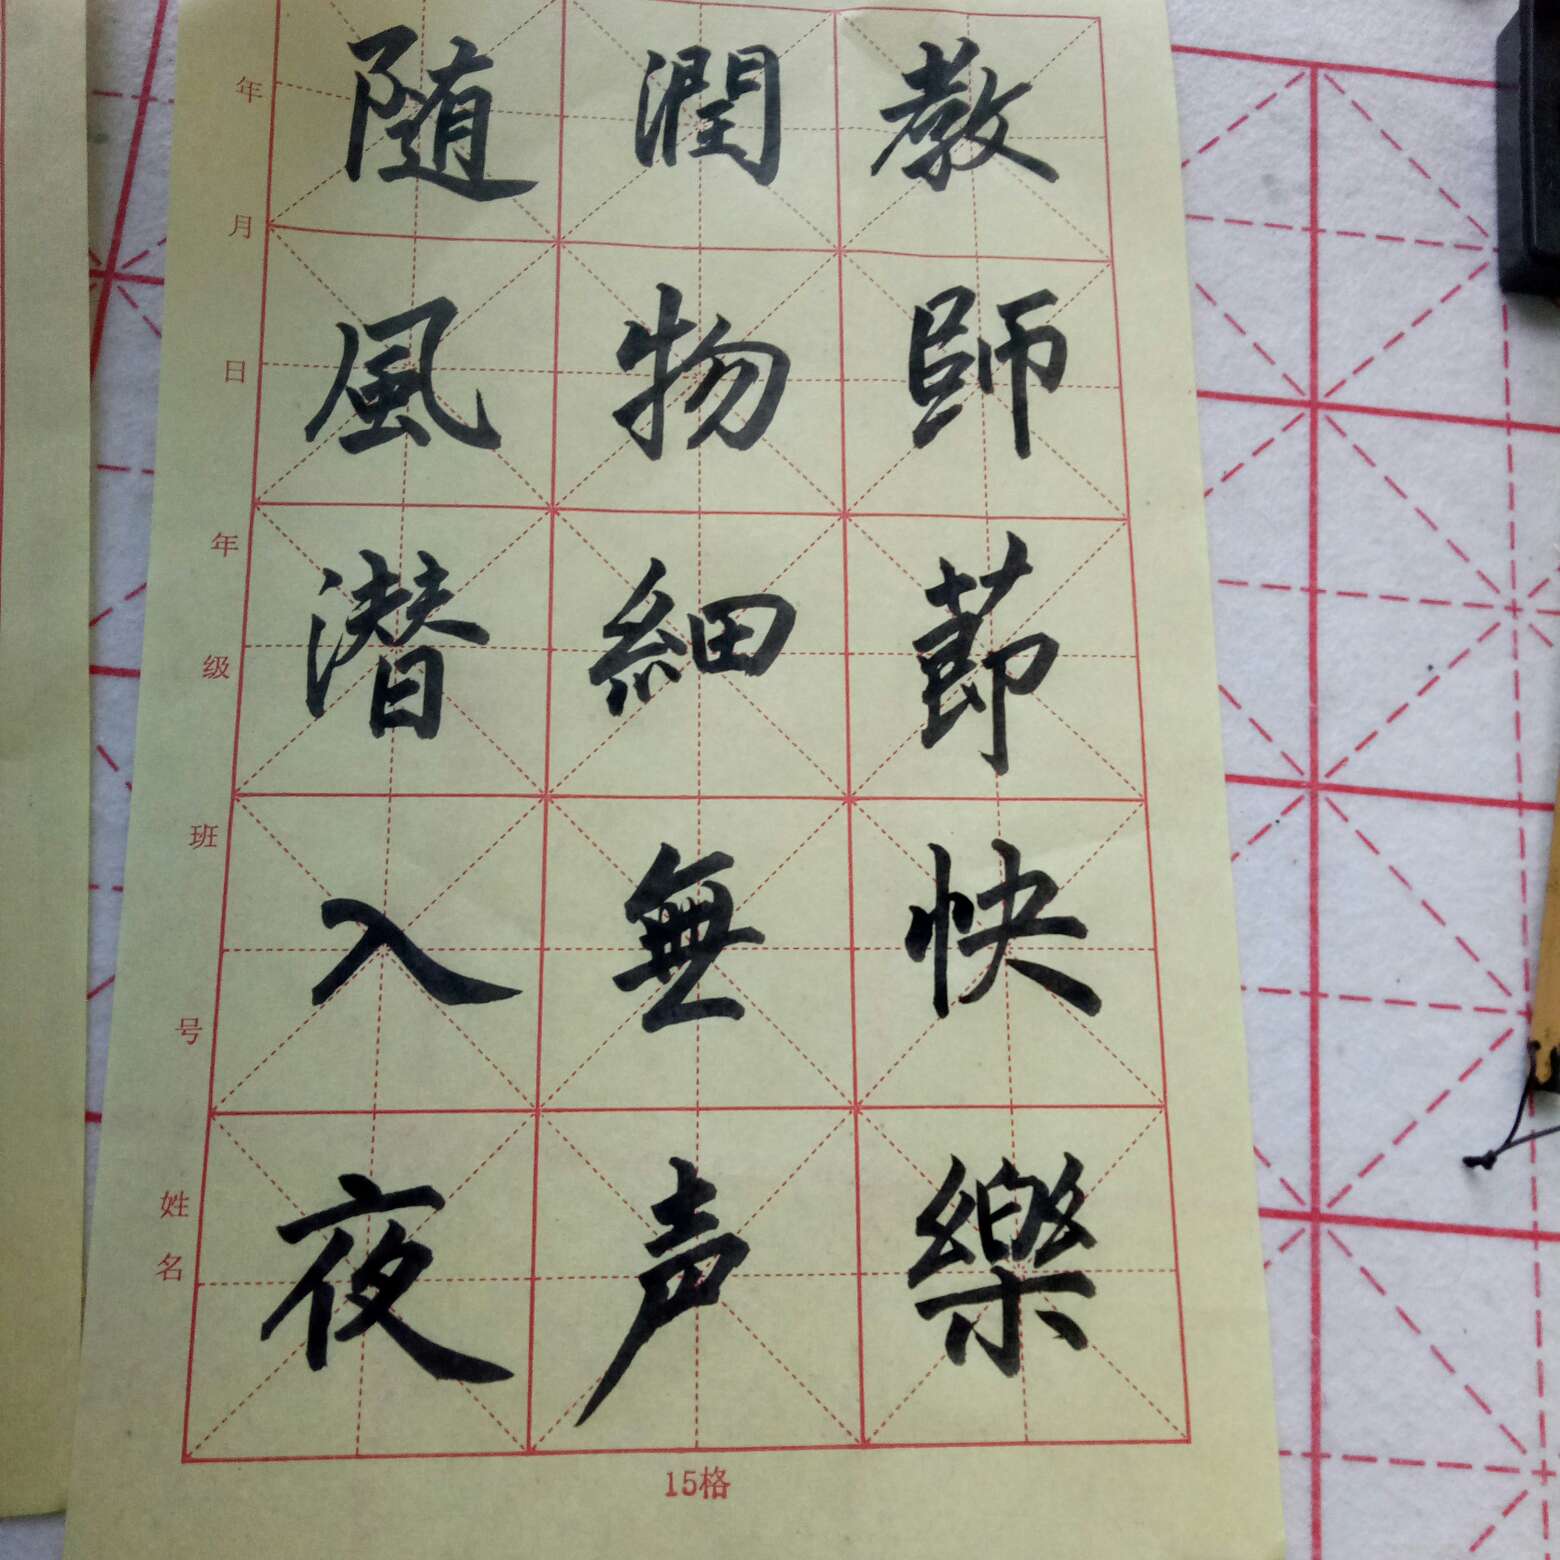 教師節快樂
潤物細無声
随風潜入夜
年
月
日
年
级
班
号
姓名
15格